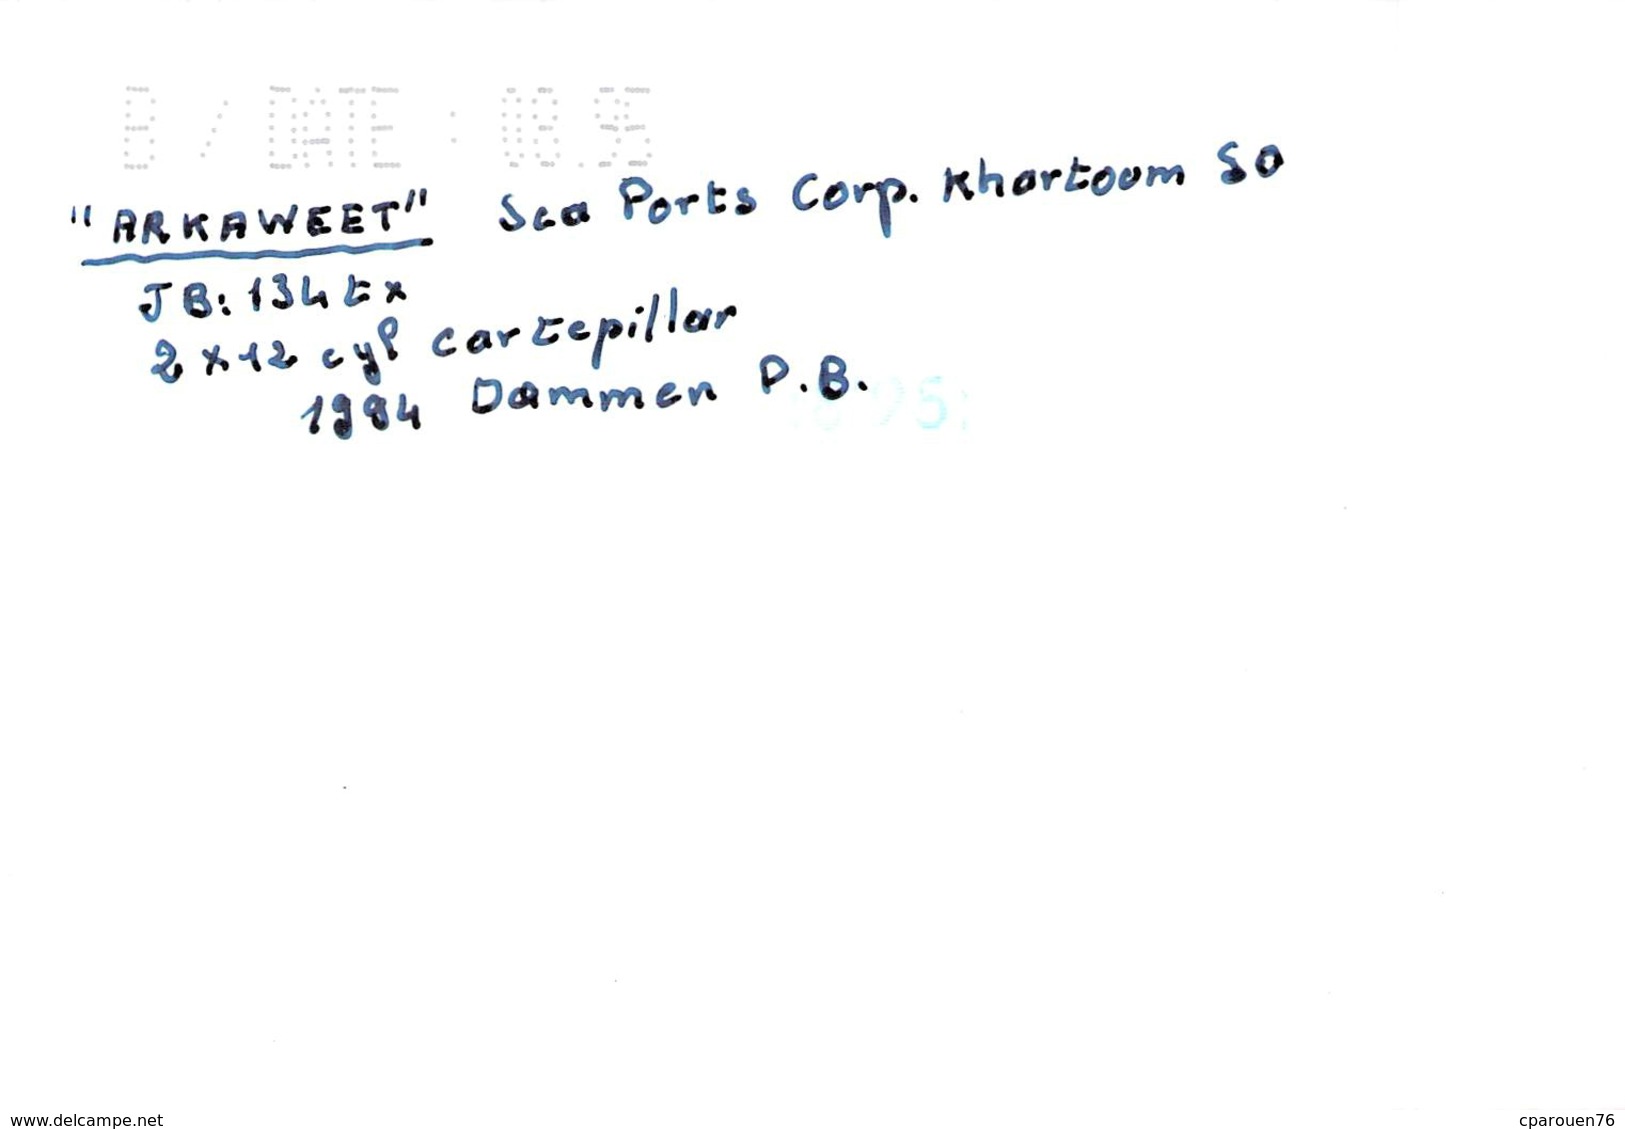 B / DATE : 08.95
"ARKAWEET" Sea Ports Corp. Khartoum SO
JB: 134 tx
2 x 12 cyl cartepillar
1994 Dammen P.B.
www.delcampe.net
cparouen76